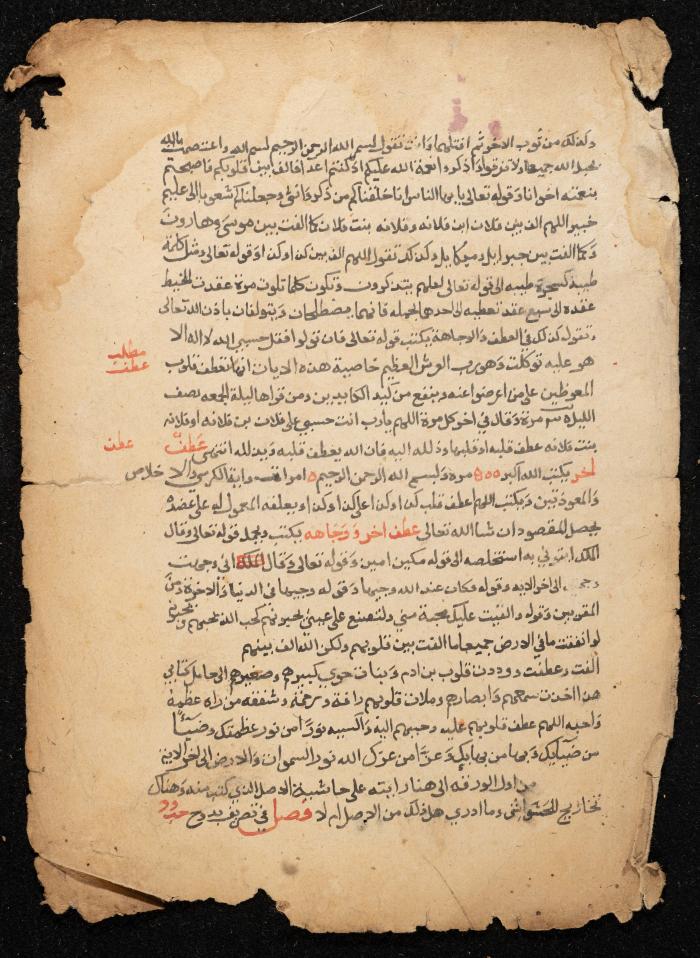 وكذلك من ثوب الاخر ثم افتلهما وانت تقول بسم الله الرحمن الرحيم بسم الله واعتصمت بالله
بحبل الله جميعا ولا تفرقوا واذكروا نعمة الله عليكم اذ كنتم اعداء فالف بين قلوبكم فاصبحتم
بنعمته اخوانا وقوله تعالى يا يها الناس انا خلقناكم من ذكر وانثى وجعلناكم شعوبا الى عليم
خبير اللهم الف بين فلان ابن فلانه وفلانه بنت فلان كما الفت بين موسى وهارون
وكما الفت بين جبرايل وميكايل وكذلك تقول اللهم الف بين كذا وكذا وقوله تعالى ومثل كلمة
طيبة كشجرة طيبه الى قوله تعالى لعلهم يتذكرون وتكون كلما تلوت مرة عقدت الخيط
عقده الى سبع عقد تعطيه لاحدها يحمله فانهما يصطلحان ويتولفان باذن الله تعالى
وتقول كذلك في العطف والوجاهة يكتب قوله تعالى فان تولوا فقل حسبي الله لا اله الا
هو عليه توكلت وهو رب العرش العظيم خاصية هذه الايات انها تعطف قلوب
مطلب
عطف
المعرضين على من اعرضوا عنه وينفع من كيد الكايدين ومن قراها ليلة الجمعه نصف
الليل مرة وقال في اخر كل مرة اللهم يا رب انت حسبي على فلان بن فلانه او فلانه
بنت فلانه عطف قلبه او قلبها وذلله اليه فان الله يعطف قلبه ويذلله انتهى عطف
عطف
اخر يكتب الله اكبر مرة وبسم الله الرحمن الرحيم واية الكرسي والاخلاص
والمعوذتين ويكتب اللهم عطف قلب كذا وكذا على كذا وكذا ويعلقه المعمول له على عضده
يحصل المقصود ان شا الله تعالى عطف اخر ووجاهه يكتب ويحمل قوله تعالى وقال
الملك ايتوني به استخلصه الى قوله مكين امين وقوله تعالى وقال اني وجهت
وجهي الى اخر الايه وقوله فكان عند الله وجيها وقوله وجيها في الدنيا والاخرة ومن
المقربين وقوله والقيت عليك محبة مني ولتصنع على عيني يحبونهم كحب الله يحبهم ويحبونه
لو انفقت ما في الارض جميعا ما الفت بين قلوبهم ولكن الله الف بينهم
الفت وعطفت ووددت قلوب بن ادم وبنات حوى كبيرهم وصغيرهم الى حامل كتابي
هذا اخذت سمعهم وابصارهم وملات قلوبهم رافة ورحمة وشفقه من راه عظمه
واحبه اللهم عطف قلوبهم عليه وحببهم اليه واكسبه نورا من نور عظمتك وضياء
من ضيايك وبها من بهايك وعزا من عزك الله نور السموات والارض الى اخر الاية
من اول الورقه الى هنا رايته على حاشية الاصل الذي كتبت منه وهناك
تخاريج للحشو انتهى وما ادري هل ذلك من الاصل ام لا فصل في تصريف بدوح